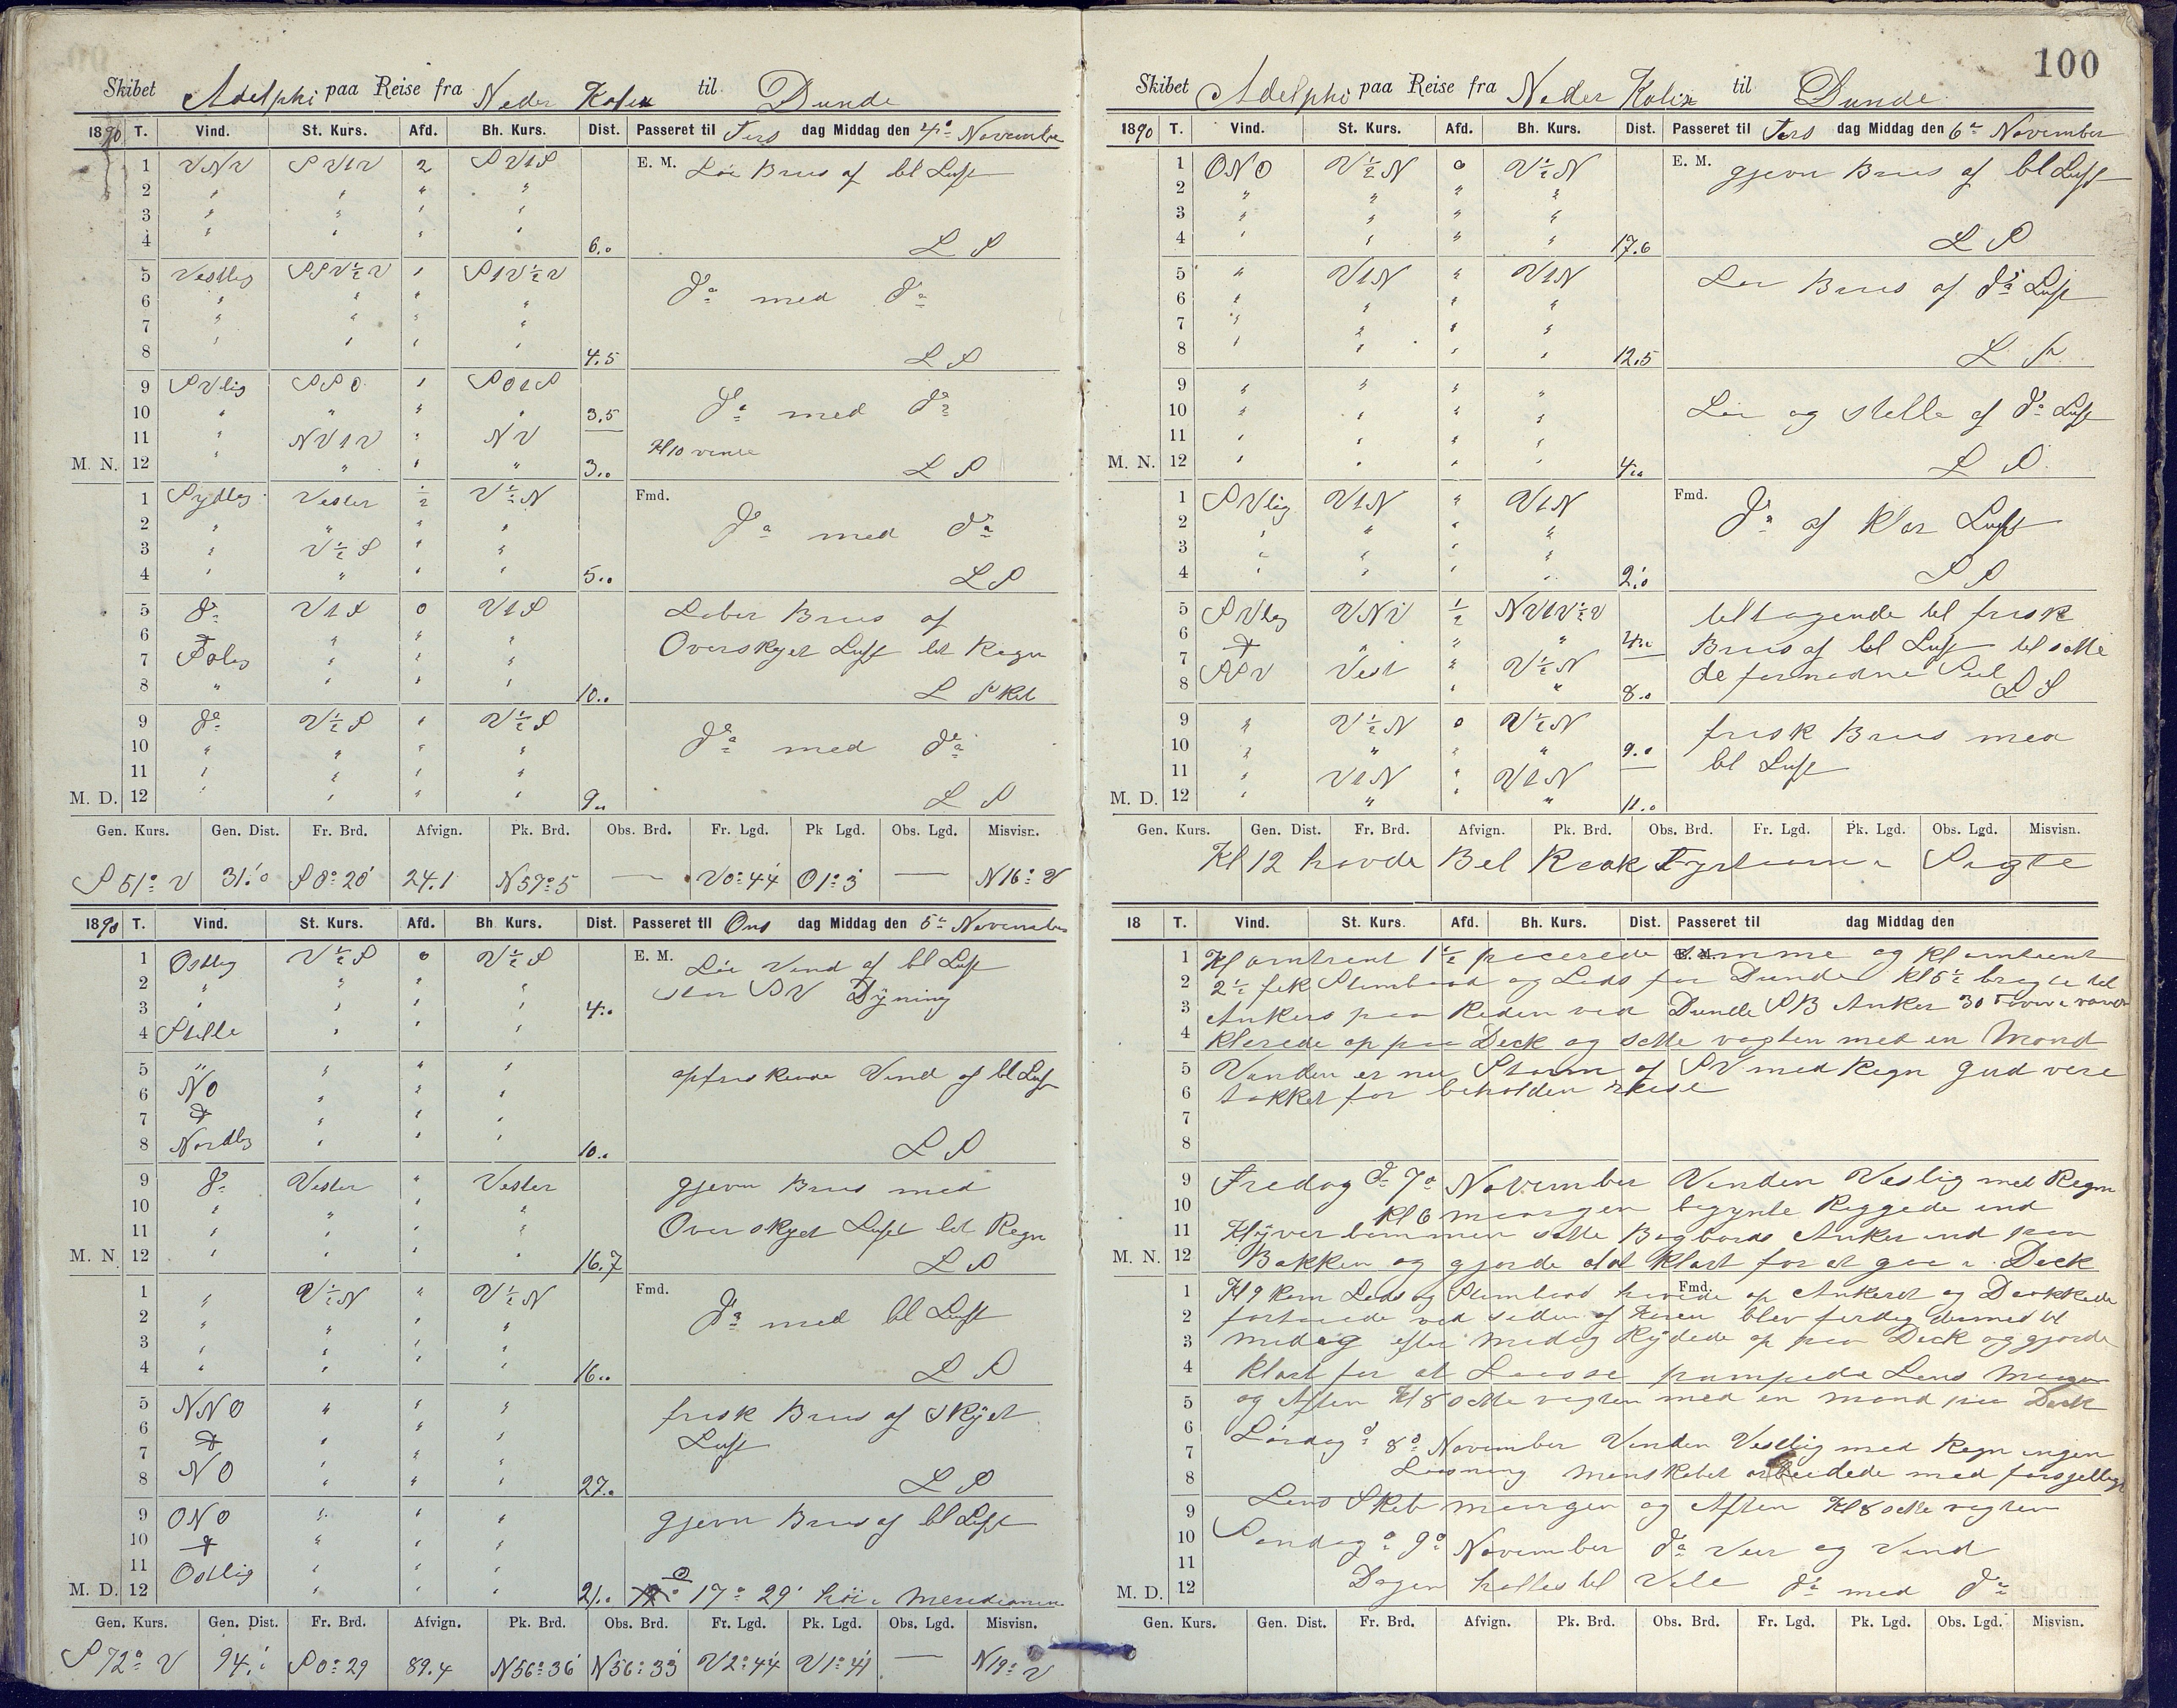 100
Skibet Adelphi paa Reise fra Neder Kalix til Dunde
1890 T. Vind. St. Kurs. Afd. Bh. Kurs. Dist. Passeret til Tirs dag Middag den 4de November
1 VNV SV1V 2 SV1S E. M. Løi Bris af bl Luft
2 " " " "
3 " " " "
4 " " " " 6.0 L S
5 Vestlig SSV½V " S1V½V do med do
6 " " " "
7 " " " "
8 " " " " 4.5 L S
9 SVlig SSO " SO1S
10 " " " " 3.5 do med do
11 " NV1V " NV Kl 10 vente
M. N. 12 " " " " 3.0 L S
1 Sydlig Vester ½ V½N Fmd.
2 " " " " do med do
3 " V½S " "
4 " " " " 5.0 L S
5 do V1S 0 V1S Laber Bris af
6 " " " Overskyet Luft let Regn
7 " " "
8 " " " " 10.0 L Skib
9 do V½S " V½S
10 " " " " do med do
11 " " " "
M. D. 12 " " " " 9.0 L S
Gen. Kurs. Gen. Dist. Fr. Brd. Afvign. Pk. Brd. Obs. Brd. Fr. Lgd. Pk Lgd. Obs. Lgd. Misvisn.
S 51° V 31.0 S 0° 20' 24.1 N 57° 5 — V 0° 44' O 1° 3' — N 16° V
1890 T. Vind. St. Kurs. Afd. Bh Kurs. Dist. Passeret til Ons dag Middag den 5te November
1 Ostlig V½S 0 V½S E. M. Løi Vind af bl Luft
2 " " " " stor SV Dyning
3 " " " " 4.0
4 Stille " " "
5 " " " " opfriskende Vind af bl Luft
6 NO " " "
7 " " "
8 Nordlig " " " 10.0 L S
9 do Vester " Vester gjevn Bris med
10 " " " "
11 " " " " Overskyet Luft let Regn
M. N. 12 " " " " 16.7 L S
1 " V½N " V½N Fmd.
2 " " " " do med bl Luft
3 " " " "
4 " " " " 16.0 L S
5 NNO " " " frisk Bris af Skyet
6 " " " Luft
7 " " "
8 NO " " " 27.0 L S
9 ONO " " " gjevn Bris af bl Luft
10 " " "
11 Ostlig " " "
M. D. 12 " " " 21.0 17° 29' høi i Meridianen
Gen. Kurs. Gen. Dist. Fr. Brd. Afvign. Pk. Brd. Obs. Brd. Fr. Lgd. Pk. Lgd. Obs. Lgd. Misvisn.
S 72° V 94. S 0° 29 89.4 N 56° 36' N 56° 33' V 2° 44' V 1° 41' — N 19° V
Skibet Adelphi paa Reise fra Neder Kalix til Dunde
1890 T. Vind. St. Kurs. Afd. Bh. Kurs. Dist. Passeret til Tors dag Middag den 6te November
1 ONO V½N 0 V½N E. M. gjevn Bris af bl Luft
2 " " " "
3 " " " "
4 " " " " 17.6 L S
5 " V1N " V1N Løi Bris af do Luft
6 " " " "
7 " " " "
8 " " " " 12.5 L S
9 " " " "
10 " " " " Løi og stille af do Luft
11 " " " "
M. N. 12 " " " " 4.0 L S
1 SVlig V1N " V1N Fmd. do af klar Luft
2 " " " "
3 " " " "
4 " " " " 2.0 L S
5 SVlig VNV ½ NV1V½V tiltagende til frisk
6 " " " 4.0 Bris af bl Luft til satte
7 SSV Vest " V½N de fornødne Seil
8 " " 8.0 L S
9 " V½N 0 V½N frisk Bris med
10 " " " " 9.0 bl Luft
11 " V1N " V1N
M. D. 12 " " " " 11.0
Gen. Kurs. Gen. Dist. Fr. Brd. Afvign. Pk. Brd. Obs. Brd. Fr. Lgd. Pk. Lgd. Obs. Lgd. Misvisn.
Kl 12 havde Bel Rock Fyrtaarn i Sigte
18 T. Vind. St. Kurs. Afd. Bh. Kurs. Dist. Passeret til dag Middag den
1 Kl omtrent 1½ passerede samme og Kl omtrent E. M.
2 2½ fik Stimbaad og Lods for Dunde Kl 5½ bragte til
3 Ankers paa Reden ved Dunde SB Anker 30 Favne
4 klarede op paa Deck og satte vagten med en Mand
5 Vinden er nu Storm af SV med Regn Gud vere
6 takket for beholden reise
7
8
9 Fredag d. 7de November Vinden Veslig med Regn
10 Kl 6 morgen begynte Riggede ind
11 Klyverbommen satte Bagbords Anker ind paa
M. N. 12 Bakken og gjorde alt klart for at gaa i Dock
1 Kl 9 kom Lods og Stimbaad hivede op Ankeret og Dokkede Fmd.
2 fortøiede ved siden af Kaien blev ferdig dermed til
3 Midag efter Midag Rydede op paa Deck og gjorde
4 klart for at Losse pumpede Lens Morgen
5 og Aften Kl 8 satte vagten med en mand paa Deck
6 Lørdag d 8de November Vinden Vestlig med Regn ingen
7 Losning Manskabet arbeidede med forsjellig
8
9 Lens Skib morgen og Aften Kl 8 satte vagten
10 Søndag d 9de November do Veir og Vind
11
M. D. 12 Dagen holtes til Vile do med do
Gen. Kurs. Gen. Dist. Fr. Brd. Afvign. Pk. Brd. Obs. Brd. Fr. Lgd. Pk. Lgd. Obs. Lgd. Misvisn.